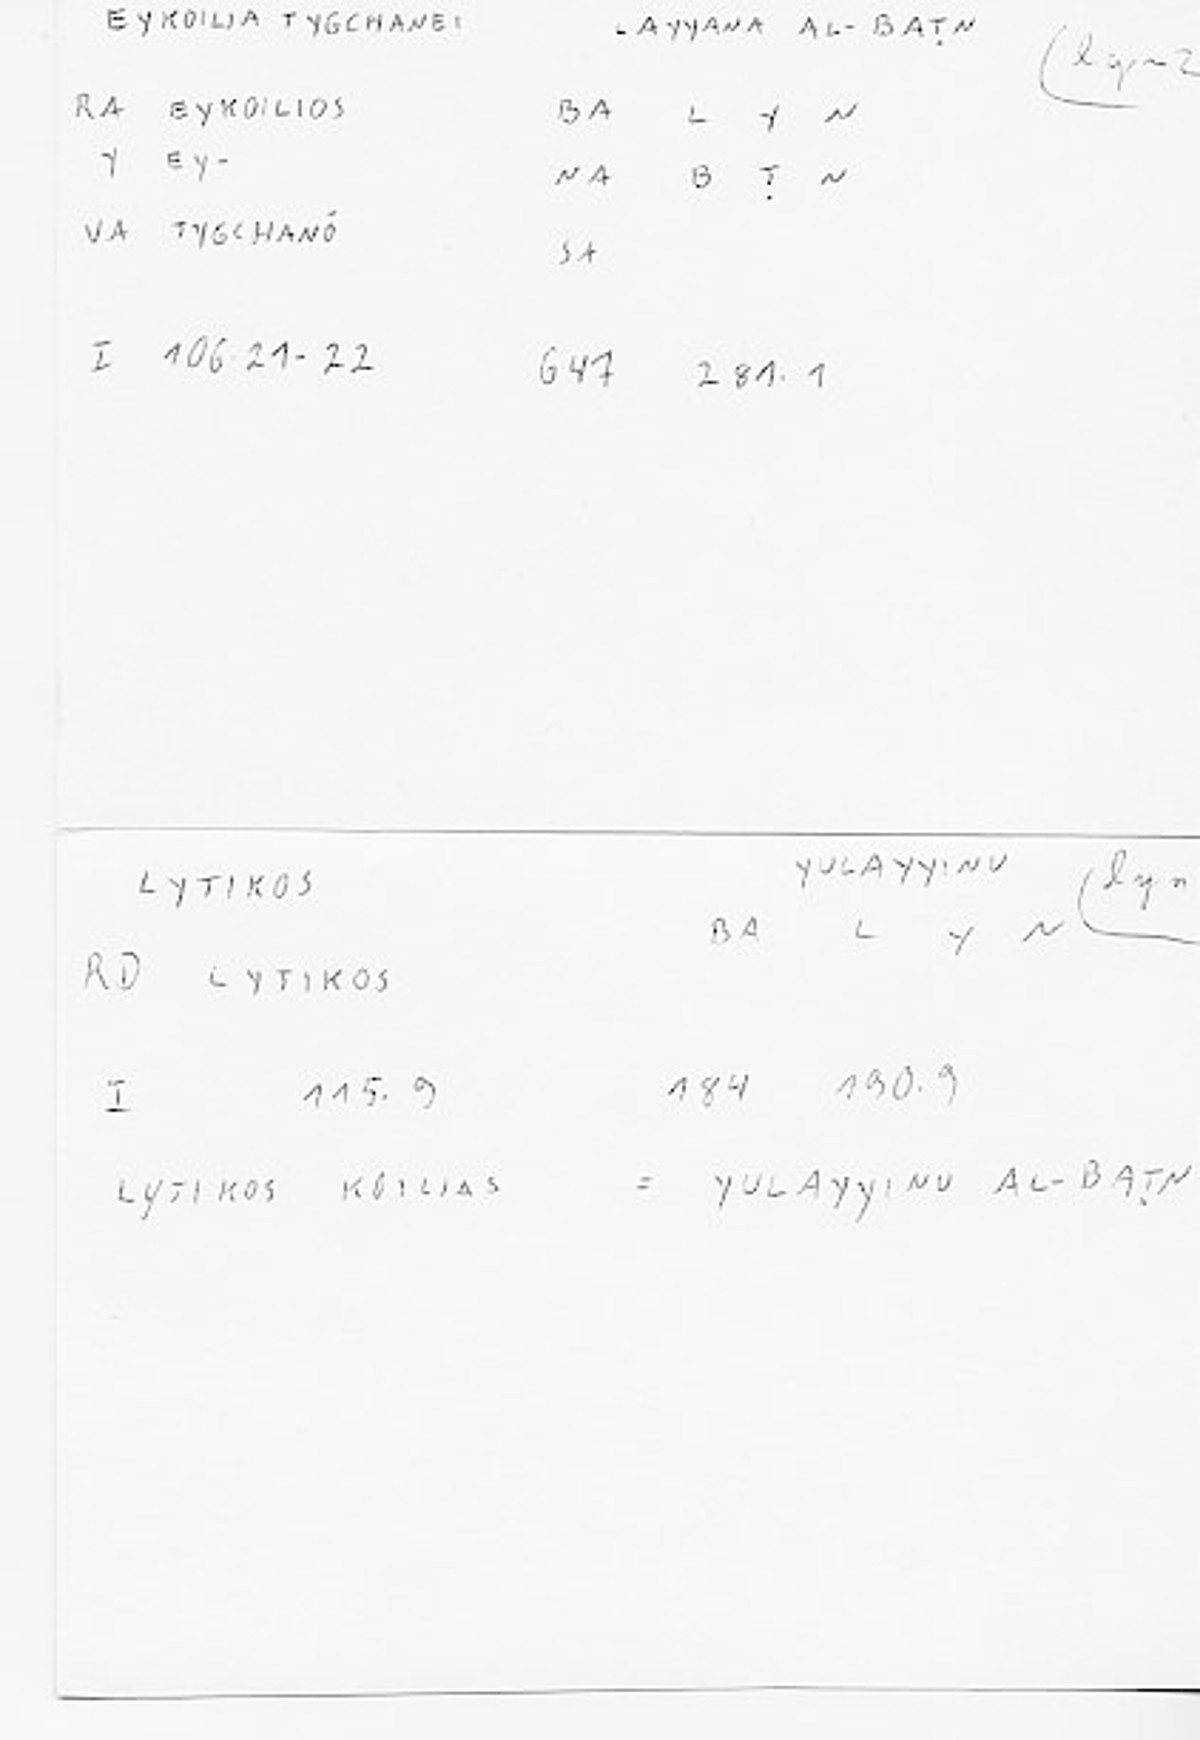 EYKOILIA TYGCHANEI LAYYANA AL-BAṬN (lyn2
RA EYKOILIOS BA L Y N
Y EY-
NA B Ṭ N
VA TYGCHANÓ
SA
I 106.21-22 647 281.1
LYTIKOS YULAYYINU (lyn
BA L Y N
RD LYTIKOS
I 115.9 184 190.9
LYTIKOS KOILIAS = YULAYYINU AL-BAṬN